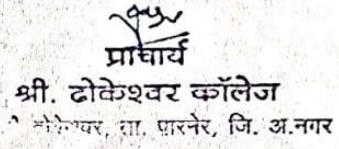 प्राचार्य
श्री. ढोकेश्वर कॉलेज
ता. पारनेर, जि. अ.नगर